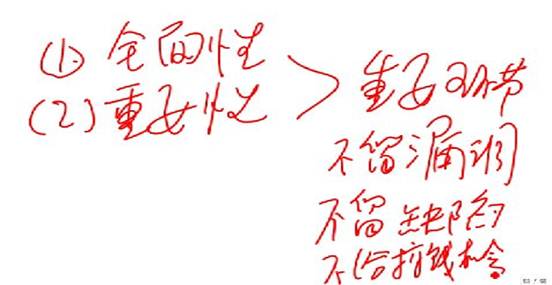 (1) 全面性
(2) 重要性 > 重要环节
不留漏洞
不留缺陷
不给钱机会